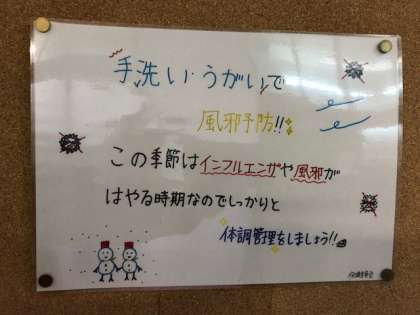 手洗い・うがいで
風邪予防!!
この季節はインフルエンザや風邪が
はやる時期なのでしっかりと
体調管理をしましょう!!